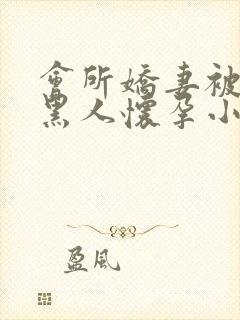 會所嬌妻被
黑人懷孕小
盈風